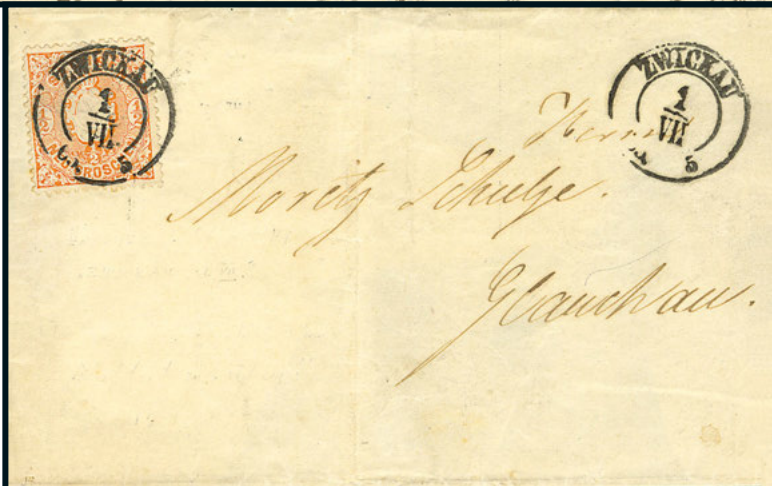 ZWICKAU
1
VII.
5
ZWICKAU
1
VII
5
Herrn
Moritz Schulze.
Glauchau.